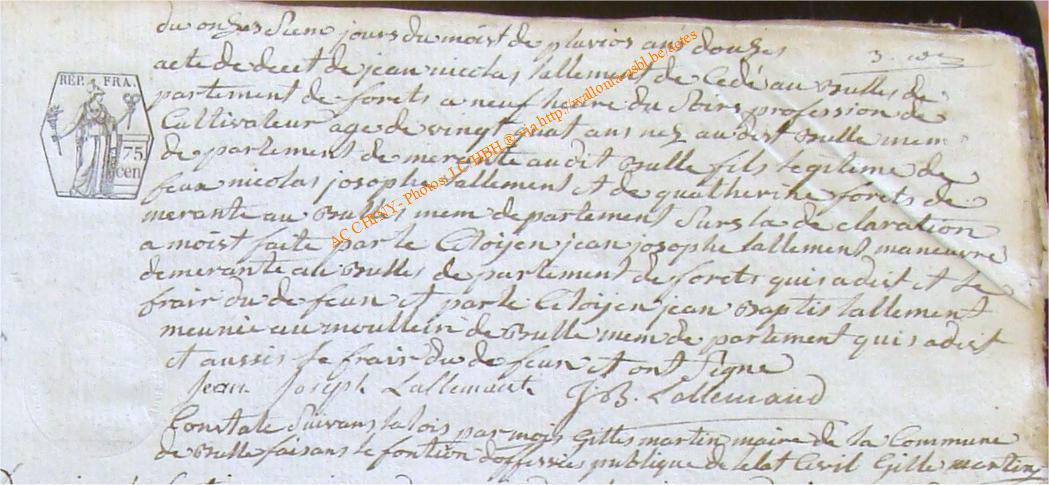 du onzes sienm jours du moist de pluvios ans douzes
acte de decet de jean nicolas lallement de Cedé au Bulles de
partement de forets a neuf heure du Soirs profession de
Cultivateur age de vingt nat ans nez au dit Bulle mem
de partement de merante au dit Bulle fils legitime de
feux nicolas josophe lallement et de quatherine forets de
merante au Bulles mem de partement Surs la de claration
a moist faite par le Citoÿen jean josophe lallement maneuvre
de merante au Bulles de partement de forets qui s a dist et le
frair du de feun et par le Citoÿen jean Baptis lallement
meunié au moullein de Bulle mem de partement qui s a dist
et aussis le frair du de feun et ont Signe
Jean Joseph Lallemant J.B. Lallemand
Constate Suivans la lois par mois Gilles martin maire de la Commune
de Bulle faisans le fontion dofficiés publique de letat Civil Gille martin
RÉP. FRA.
75
cen
AC CHINY - Photos: LC/HBH ® via http://wallonia-asbl.be/actes